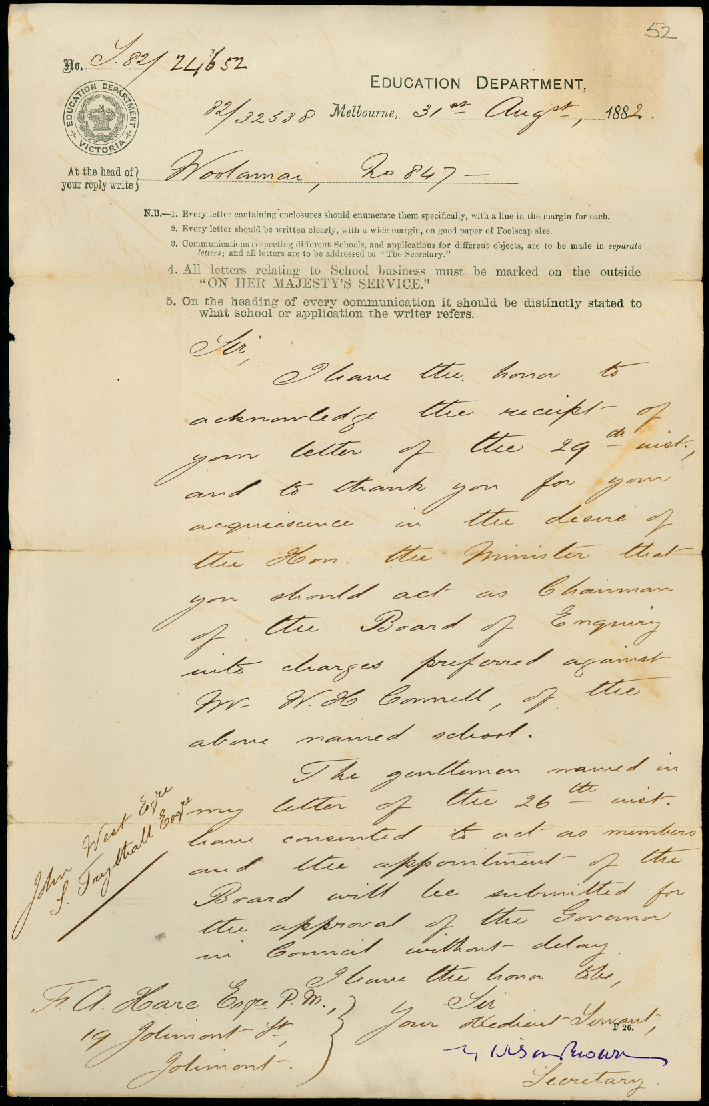 52
No. S.82/24652
EDUCATION DEPARTMENT,
82/32538 Melbourne, 31st Augst, 1882.
EDUCATION DEPARTMENT VICTORIA
At the head of your reply write} Woolamai, No 847 —
N.B.—1. Every letter containing enclosures should enumerate them specifically, with a line in the margin for each.
2. Every letter should be written clearly, with a wide margin, on good paper of Foolscap size.
3. Communications respecting different Schools, and applications for different objects, are to be made in separate
letters; and all letters are to be addressed to "The Secretary."
4. All letters relating to School business must be marked on the outside
"ON HER MAJESTY'S SERVICE."
5. On the heading of every communication it should be distinctly stated to
what school or application the writer refers.
Sir,
I have the honor to
acknowledge the receipt of
your letter of the 29th inst,
and to thank you for your
acquiescence in the desire of
the Hon. the Minister that
you should act as Chairman
of the Board of Enquiry
into charges preferred against
Mr. W. H Connell, of the
above named school.
The gentlemen named in
my letter of the 26th inst.
have consented to act as members
and the appointment of the
Board will be submitted for
the approval of the Governor
in Council without delay.
John West Esqre
S. Trythall Esqre
I have the honor to be,
Sir
Your obedient Servant,
F 26.
Secretary.
F. A. Hare Esqre P.M.,
19 Jolimont St,
Jolimont.